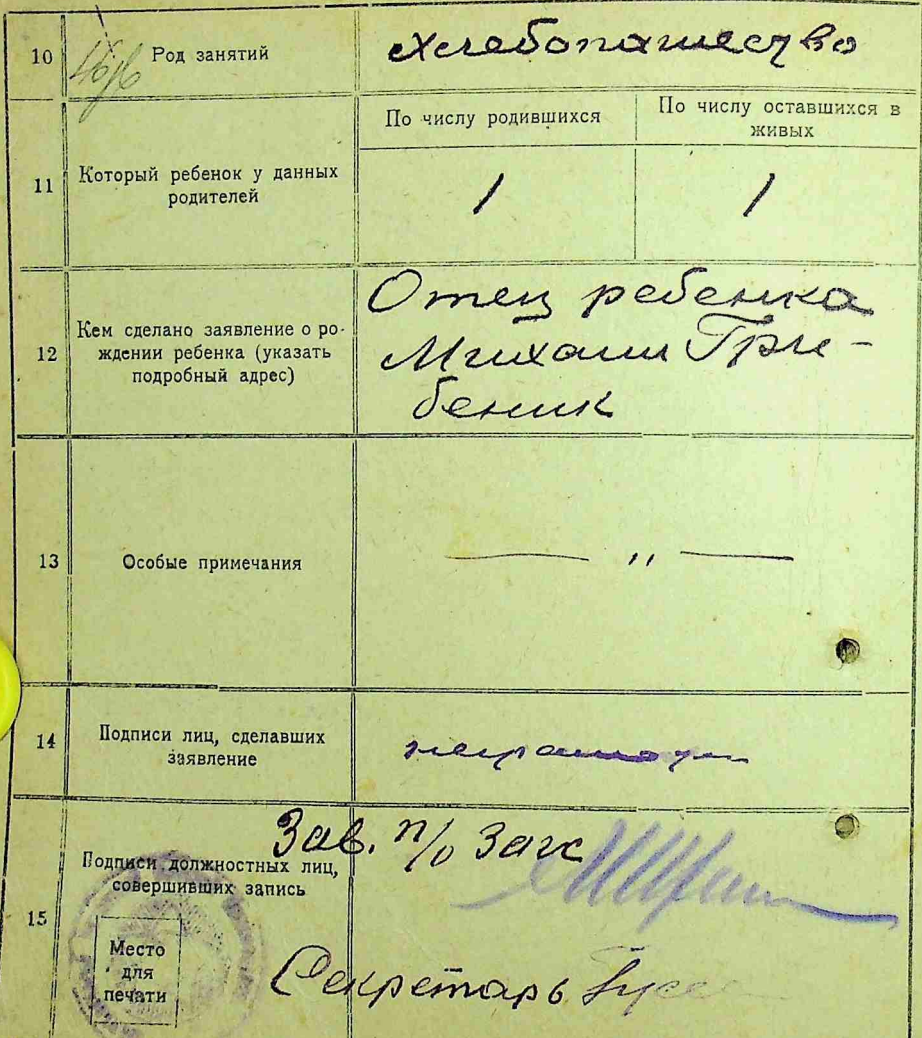 10
Род занятий
Хлебопашество
11
Который ребенок у данных
родителей
По числу родившихся
По числу оставшихся в
живых
1
1
12
Кем сделано заявление о ро-
ждении ребенка (указать
подробный адрес)
Отец ребенка
Михаил Гри-
беник
13
Особые примечания
— " —
14
Подписи лиц, сделавших
заявление
неграмотен
15
Подписи должностных лиц,
совершивших запись
Место
для
печати
Зав. п/о Загс
Секретарь